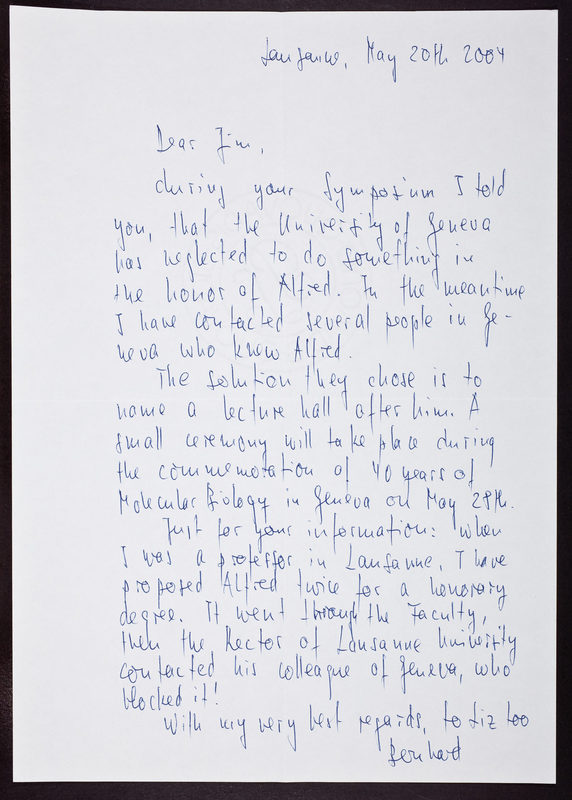 Lausanne, May 20th 2004
Dear Jim,
during your Symposium I told
you, that the University of Geneva
has neglected to do something in
the honor of Alfred. In the meantime
I have contacted several people in Ge-
neva who knew Alfred.
The solution they chose is to
name a lecture hall after him. A
small ceremony will take place during
the commemoration of 40 years of
Molecular Biology in Geneva on May 28th.
Just for your information: when
I was a professor in Lausanne, I have
proposed Alfred twice for a honorary
degree. It went through the Faculty,
then the Rector of Lausanne University
contacted his colleague of Geneva, who
blocked it!
With my very best regards, to Liz too
Bernhard